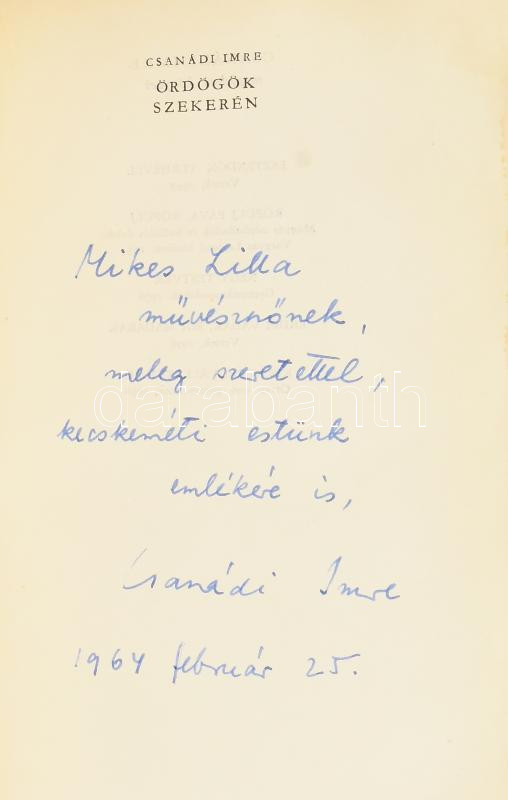 CSANÁDI IMRE
ÖRDÖGÖK
SZEKERÉN
Mikes Lilla
művésznőnek,
meleg szeretettel,
darabanth
kecskeméti estünk
emlékére is,
Csanádi Imre
1964 február 25.